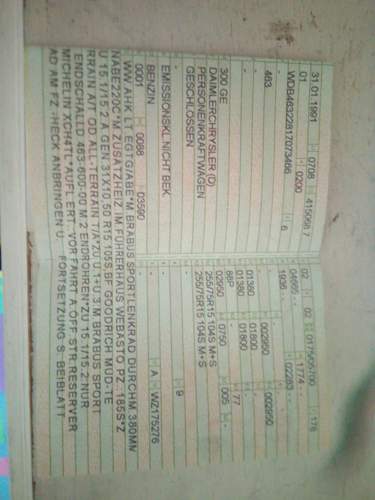 31.01.1991 0708 415068 7
01 0200
WDB46322817073466 6
463
300 GE
DAIMLERCHRYSLER (D)
PERSONENKRAFTWAGEN
GESCHLOSSEN
-
EMISSIONSKL.NICHT BEK.
BENZIN
0001 0088 03590
02 02 0175/05700 176
04665 1774
1936 02283
002950 002950
01380 01800
01380 01800 77
88P
02950 0750 005 -
255/75R15 104S M+S
255/75R15 104S M+S
9
A WZ175276
WW.AHK LT.EGTG/ABE*M.BRABUS SPORTLENKRAD DURCHM.380MM
NABE220C*M.ZUSATZHEIZ.IM FÜHRERHAUS WEBASTO PZ. 185S*Z
U 15.1/15.2 A.GEN.31X10.50 R15 105S,BF GOODRICH MUD-TE
RRAIN A/T OD.ALL-TERRAIN T/A*ZU U.1+U.3:M.BRABUS SPORT
ENDSCHALLD 463-600-00 M.2 ENDROHREN*ZU 15.1/15.2:NUR
MICHELIN XCH4TL*AUFL.ERT.:VOR FAHRT A.OFF.STR:RESERVER
AD AM FZ.-HECK ANBRINGEN U FORTSETZUNG S. BEIBLATT